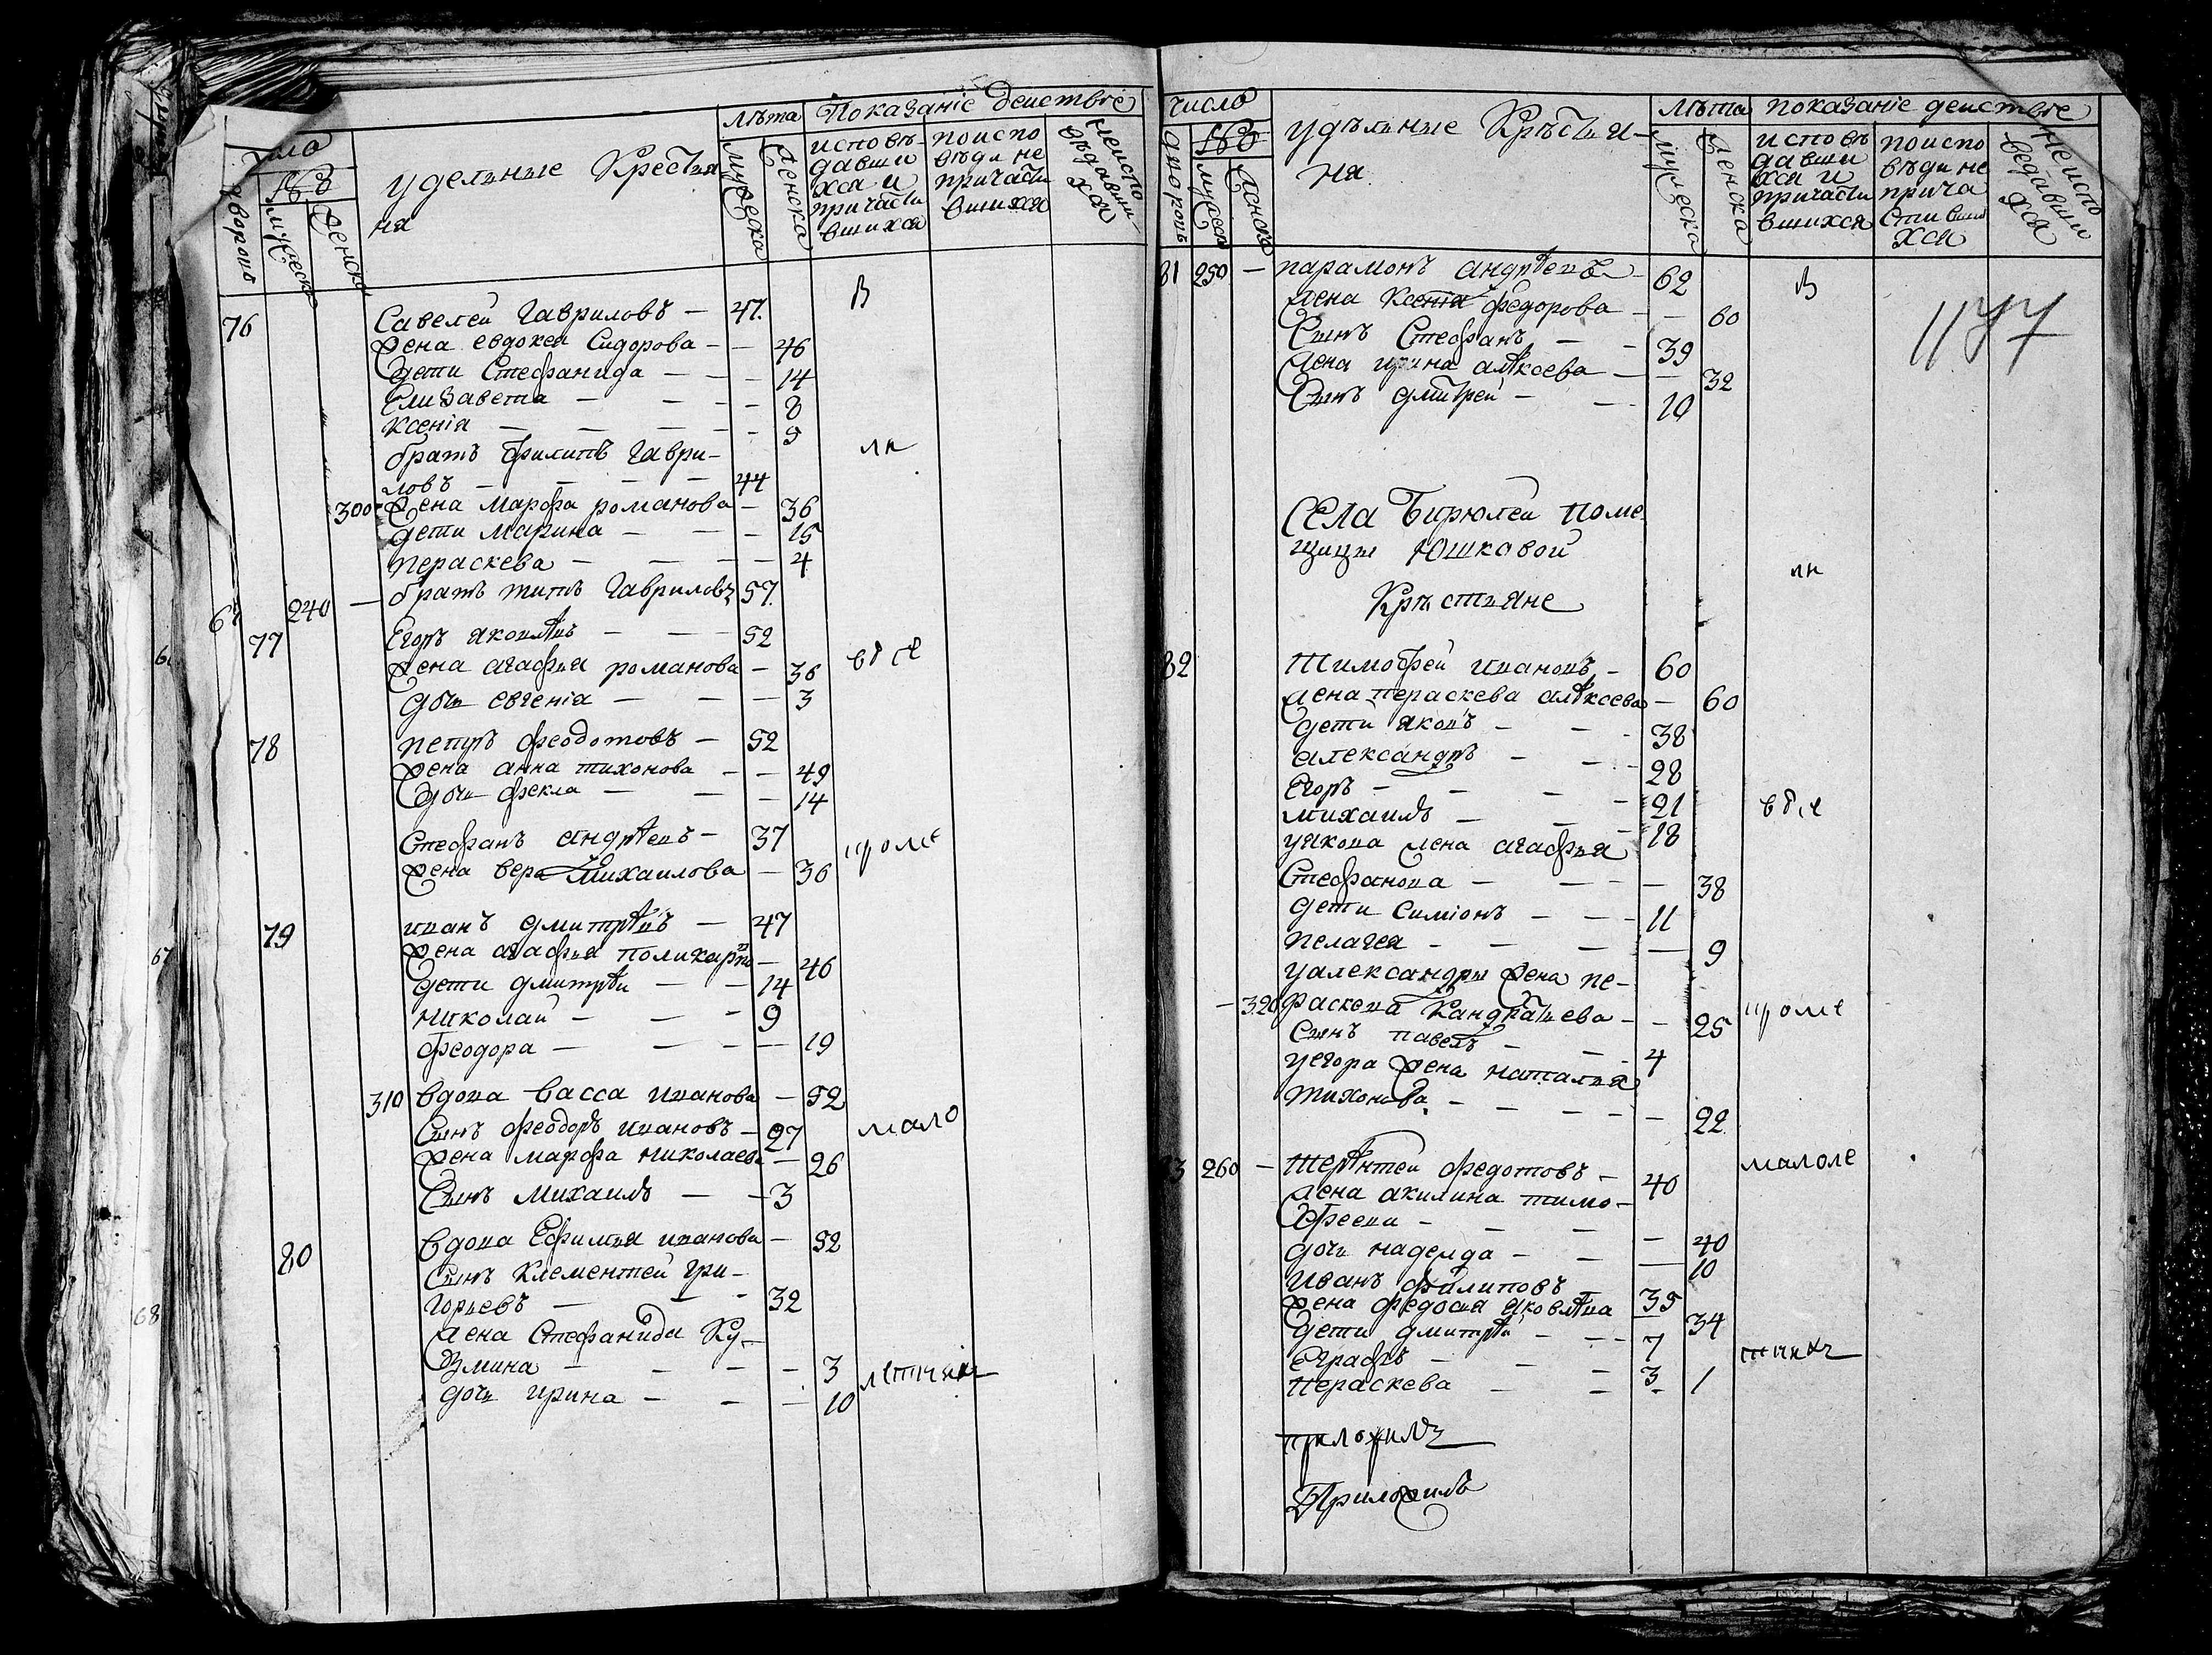 Лѣта Показаніе Действіе
числа
удельные Крестья
ня
дворовъ
мужеска
женска
мужеска
женска
исповѣ
давши
хся и
причасти
вшихся
поиспо
вѣди не
причасти
вшихся
неиспо
вѣдавши
хся
76 Савелей Гавриловъ — 47 В
жена евдокея Сидорова — — 46
дети Стефанида — — — 14
Елизавета — — — — 8
ксенія — — — — — 9
братъ филипъ Гаври-
ловъ — — — — 44
300 жена марфа романова — 36
дети марина — — — 15
пераскева — — — — 4
240 — братъ титъ Гавриловъ 57
77 Егоръ яковлѣвъ — — — 52
жена агафья романова — 36
дочь евгенія — — — 3
78 петръ феодотовъ — 52
жена анна тихонова — — 49
дочь фекла — — — 14
Стефанъ андрѣевъ — 37
жена вера Михаилова — 36
79 иванъ дмитрѣвъ — 47
жена агафья поликарпо — 46
дети дмитрѣи — — 14
николаи — — — 9
феодора — — — — 19
310 вдова васса иванова — 52
Сынъ феодоръ ивановъ — 27 мало
жена марфа николаева — 26
Сынъ михаилъ — — 3
80 вдова Ефимья иванова — 52
Сынъ клементей гри-
горьевъ — — — 32
жена Стефанида Ку-
змина — — — — 3
дочь ирина — — — 10
число
удѣльные Крѣстья-
ня
Лѣта показаніе действіе
дворовъ
мужеск
женска
мужеска
женска
исповѣ
давши
хся и
причасти
вшихся
поиспо
вѣди не
прича
стивши
хся
неиспо
ведавши
хся
81 250 — парамонъ андрѣевъ — 62 В
жена ксенія федорова — — 60
Сынъ Стефанъ — — 39 1177
жена ирина алѣксеева — — 32
Сынъ дмитрей — — 10
Села Бирюлей поме
щицы Юшковой
Крѣстьяне
82 тимофей ивановъ — 60
жена пераскева алѣксеева — 60
дети яковъ — — — 38
александръ — — — 28
Егоръ — — — — 21
михаилъ — — — 18
уякова жена агафья
Стефанова — — — — 38
дети симіонъ — — — 11
пелагея — — — — 9
уалександры жена пе-
— 320 раскева Кандратьева — — 25
Сынъ павелъ — — — 4
уегора жена наталья
тихонова — — — — — 22
260 — терѣнтей федотовъ — 40 малоле
жена акилина тимо-
феева — — — — 40
дочь надежда — — — 10
иванъ филиповъ — 35
жена федосья яковлѣва — 34
дети дмитрѣй — — — 7
Еграфъ — — — 3
пераскева — — — 1
приложилъ
Приложилъ